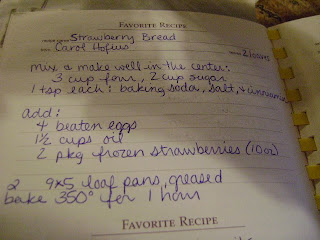 FAVORITE RECIPE
Strawberry Bread
Carol Hofius
2 loaves
Mix & make well in the center:
3 cup flour, 2 cup sugar
1 tsp each: baking soda, salt, & cinnamon
add:
4 beaten eggs
1½ cups oil
2 pkg frozen strawberries (10 oz)
2 9x5 loaf pans, greased
bake 350° for 1 hour
FAVORITE RECIPE